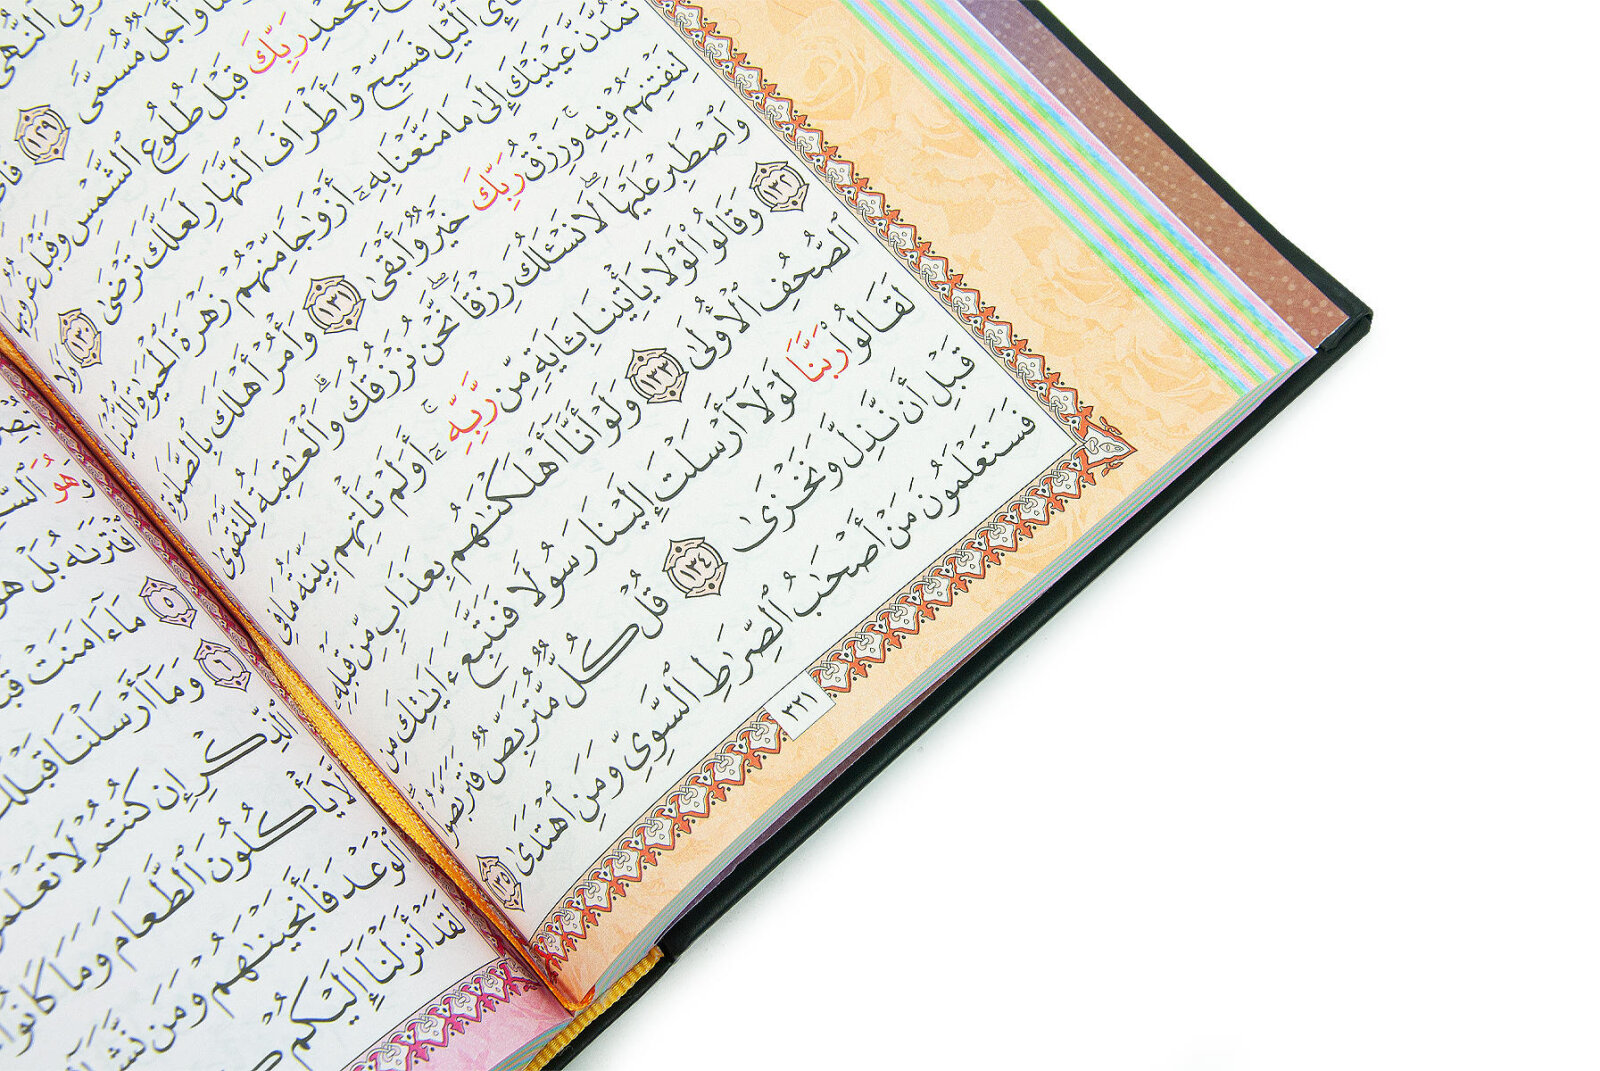 ٱلنُّهَىٰ
وَأَجَلٌ مُّسَمًّى ١٢٩
بِحَمْدِ رَبِّكَ قَبْلَ طُلُوعِ ٱلشَّمْسِ وَقَبْلَ غُرُوبِهَا
ٱلَّيْلِ فَسَبِّحْ وَأَطْرَافَ ٱلنَّهَارِ لَعَلَّكَ تَرْضَىٰ ١٣٠ وَلَا
تَمُدَّنَّ عَيْنَيْكَ إِلَىٰ مَا مَتَّعْنَا بِهِۦٓ أَزْوَٰجًا مِّنْهُمْ زَهْرَةَ ٱلْحَيَوٰةِ ٱلدُّنْيَا
لِنَفْتِنَهُمْ فِيهِ ۚ وَرِزْقُ رَبِّكَ خَيْرٌ وَأَبْقَىٰ ١٣١ وَأْمُرْ أَهْلَكَ بِٱلصَّلَوٰةِ
وَٱصْطَبِرْ عَلَيْهَا ۖ لَا نَسْـَٔلُكَ رِزْقًا ۖ نَّحْنُ نَرْزُقُكَ ۗ وَٱلْعَـٰقِبَةُ لِلتَّقْوَىٰ
١٣٢ وَقَالُوا۟ لَوْلَا يَأْتِينَا بِـَٔايَةٍ مِّن رَّبِّهِۦٓ ۚ أَوَلَمْ تَأْتِهِم بَيِّنَةُ مَا فِى
ٱلصُّحُفِ ٱلْأُولَىٰ ١٣٣ وَلَوْ أَنَّآ أَهْلَكْنَـٰهُم بِعَذَابٍ مِّن قَبْلِهِۦ
لَقَالُوا۟ رَبَّنَا لَوْلَآ أَرْسَلْتَ إِلَيْنَا رَسُولًا فَنَتَّبِعَ ءَايَـٰتِكَ مِن
قَبْلِ أَن نَّذِلَّ وَنَخْزَىٰ ١٣٤ قُلْ كُلٌّ مُّتَرَبِّصٌ فَتَرَبَّصُوا۟
فَسَتَعْلَمُونَ مَنْ أَصْحَـٰبُ ٱلصِّرَٰطِ ٱلسَّوِىِّ وَمَنِ ٱهْتَدَىٰ ١٣٥
٣٢١
وَهُوَ
ٱفْتَرَىٰهُ بَلْ هُوَ
٥ مَآ ءَامَنَتْ
٦ وَمَآ أَرْسَلْنَا قَبْلَكَ
ٱلذِّكْرِ إِن كُنتُمْ لَا تَعْلَمُونَ
لَّا يَأْكُلُونَ ٱلطَّعَامَ وَمَا كَانُوا۟
ٱلْوَعْدَ فَأَنجَيْنَـٰهُمْ وَمَن نَّشَآءُ
لَقَدْ أَنزَلْنَآ إِلَيْكُمْ